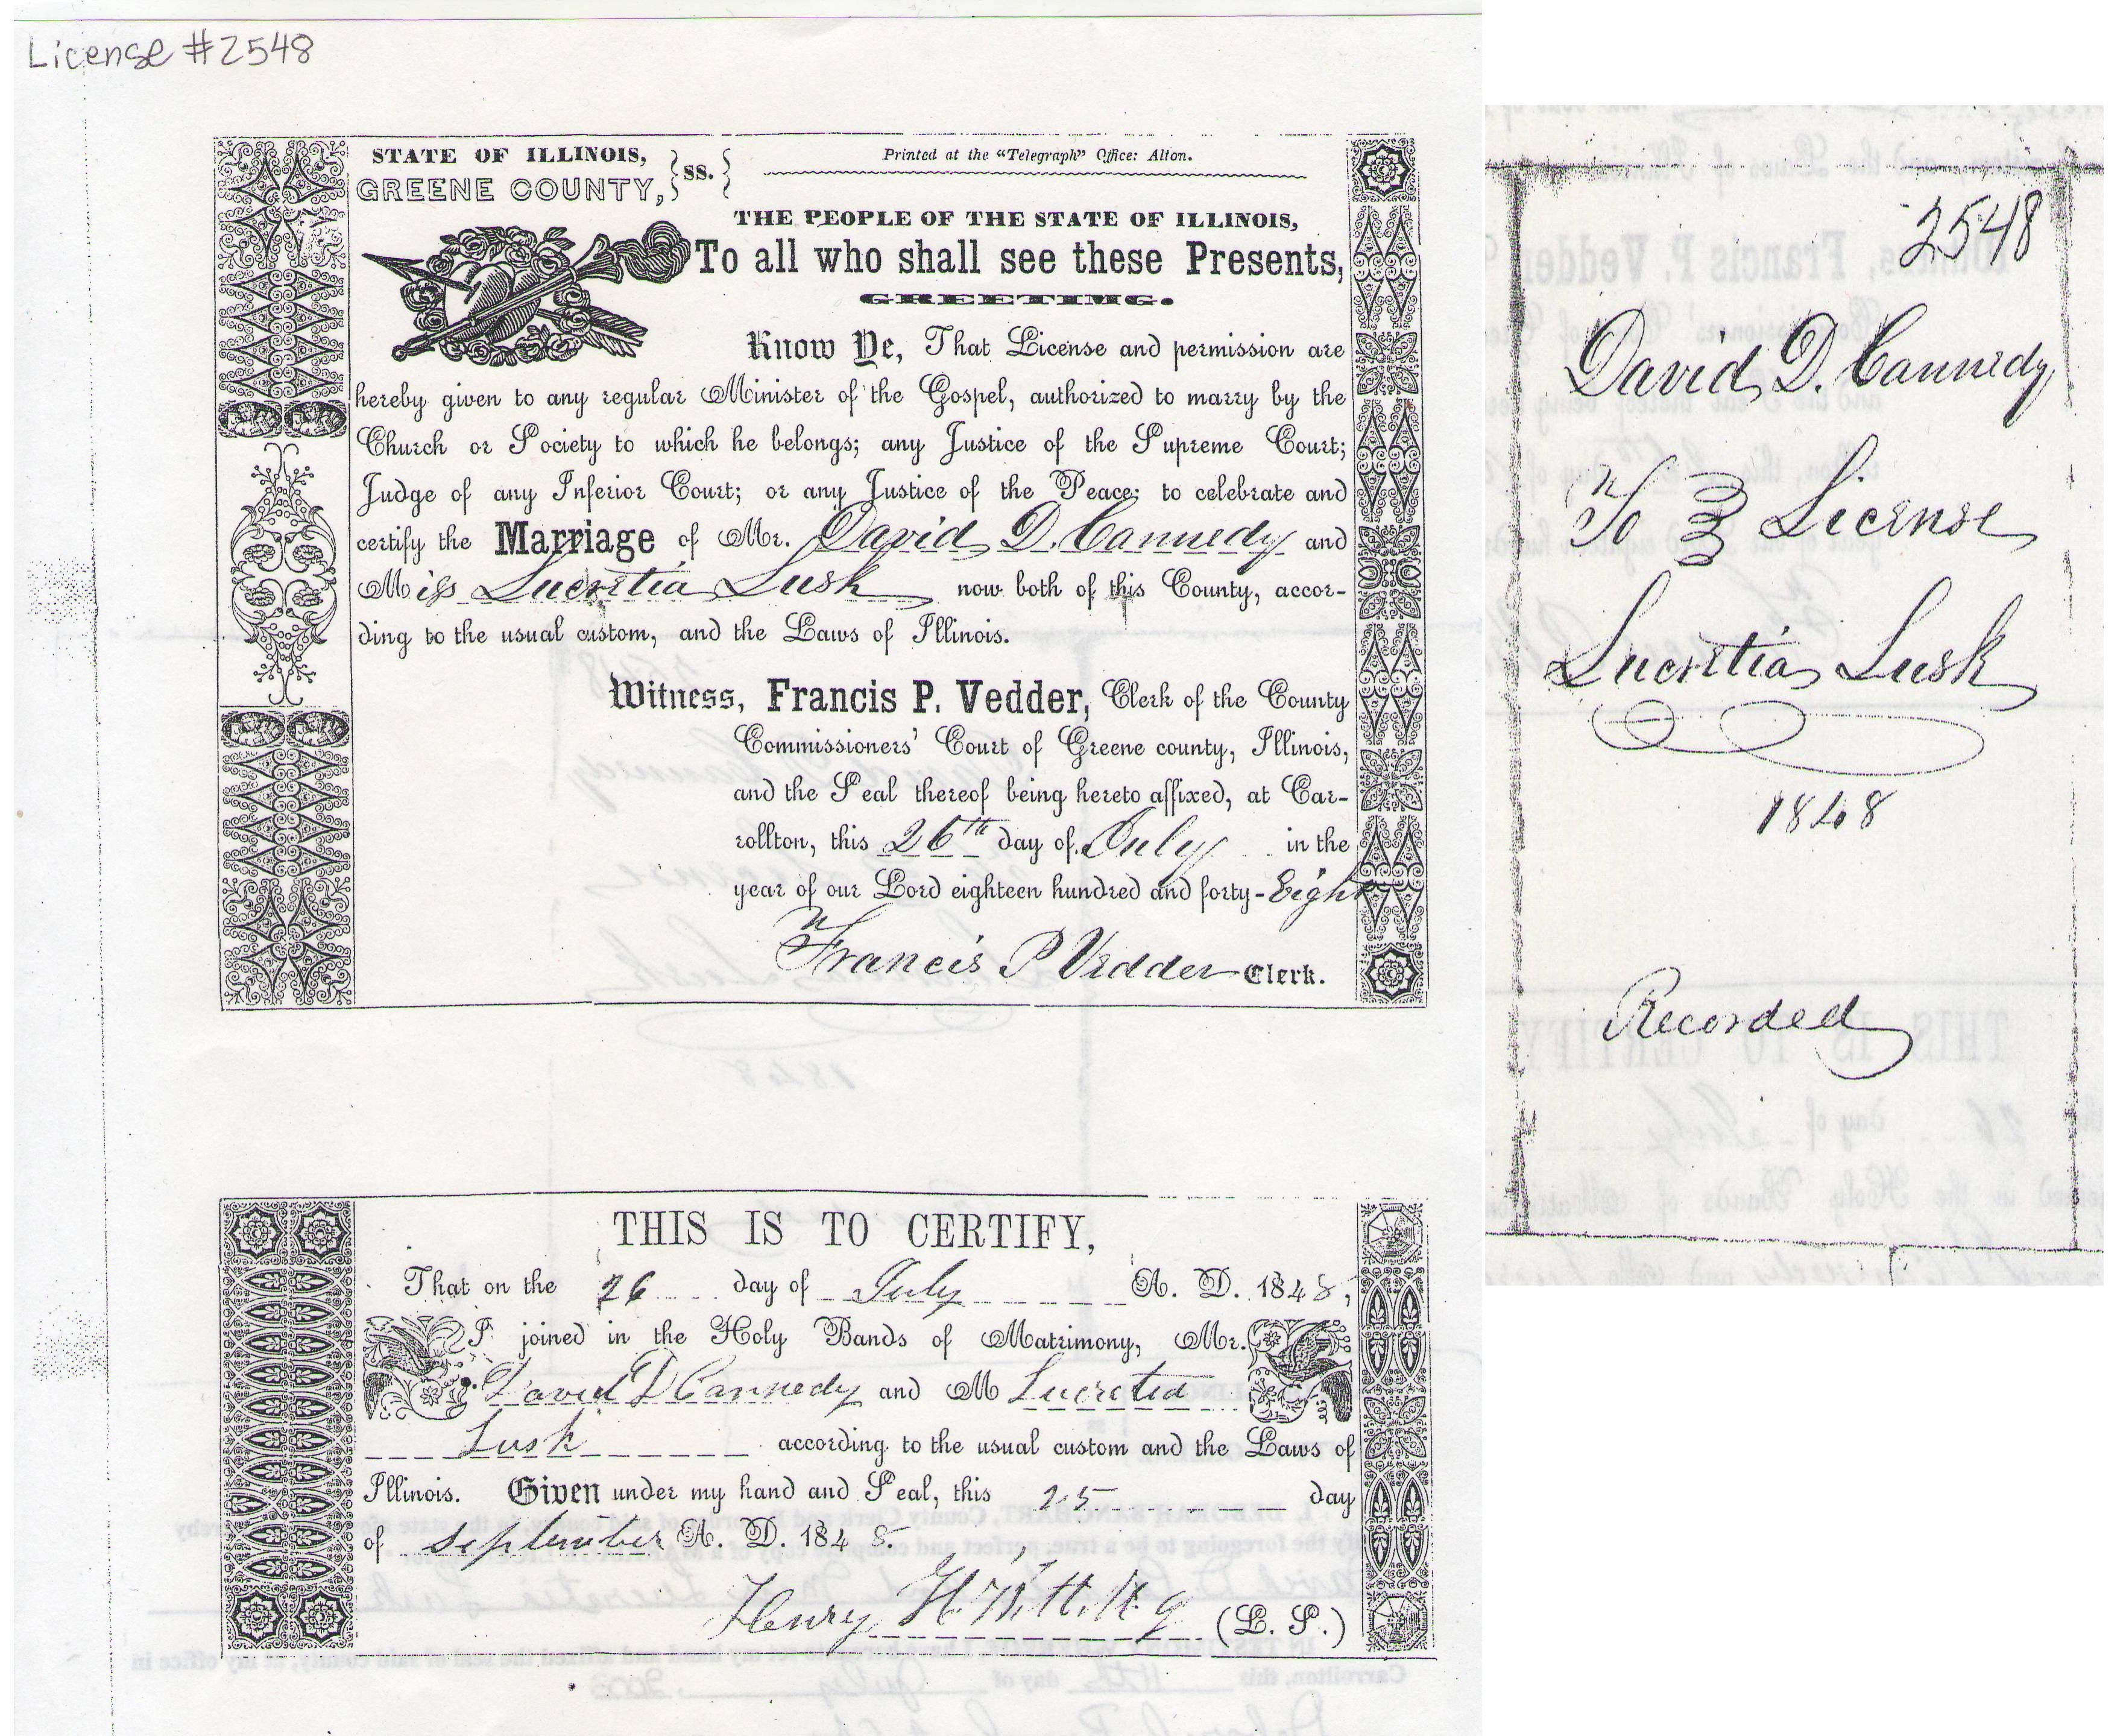 License #2548
STATE OF ILLINOIS,
GREENE COUNTY, } SS. {
Printed at the "Telegraph" Office: Alton.
THE PEOPLE OF THE STATE OF ILLINOIS,
To all who shall see these Presents,
GREETING.
Know Ye, That License and permission are
hereby given to any regular Minister of the Gospel, authorized to marry by the
Church or Society to which he belongs; any Justice of the Supreme Court;
Judge of any Inferior Court; or any Justice of the Peace; to celebrate and
certify the Marriage of Mr. David D. Cannedy and
Miss Lucretia Lusk now both of this County, accor-
ding to the usual custom, and the Laws of Illinois.
Witness, Francis P. Vedder, Clerk of the County
Commissioners' Court of Greene county, Illinois,
and the Seal thereof being hereto affixed, at Car-
rollton, this 26th day of July in the
year of our Lord eighteen hundred and forty-Eight
Francis P Vedder Clerk.
THIS IS TO CERTIFY,
That on the 26 day of July A. D. 1848,
I joined in the Holy Bands of Matrimony, Mr.
David D Cannedy and M Lucretia
Lusk according to the usual custom and the Laws of
Illinois. Given under my hand and Seal, this 25 day
of September A. D. 1848.
Henry H. (L. S.)
2548
David D. Cannedy
To } License
Lucretia Lusk
1848
Recorded